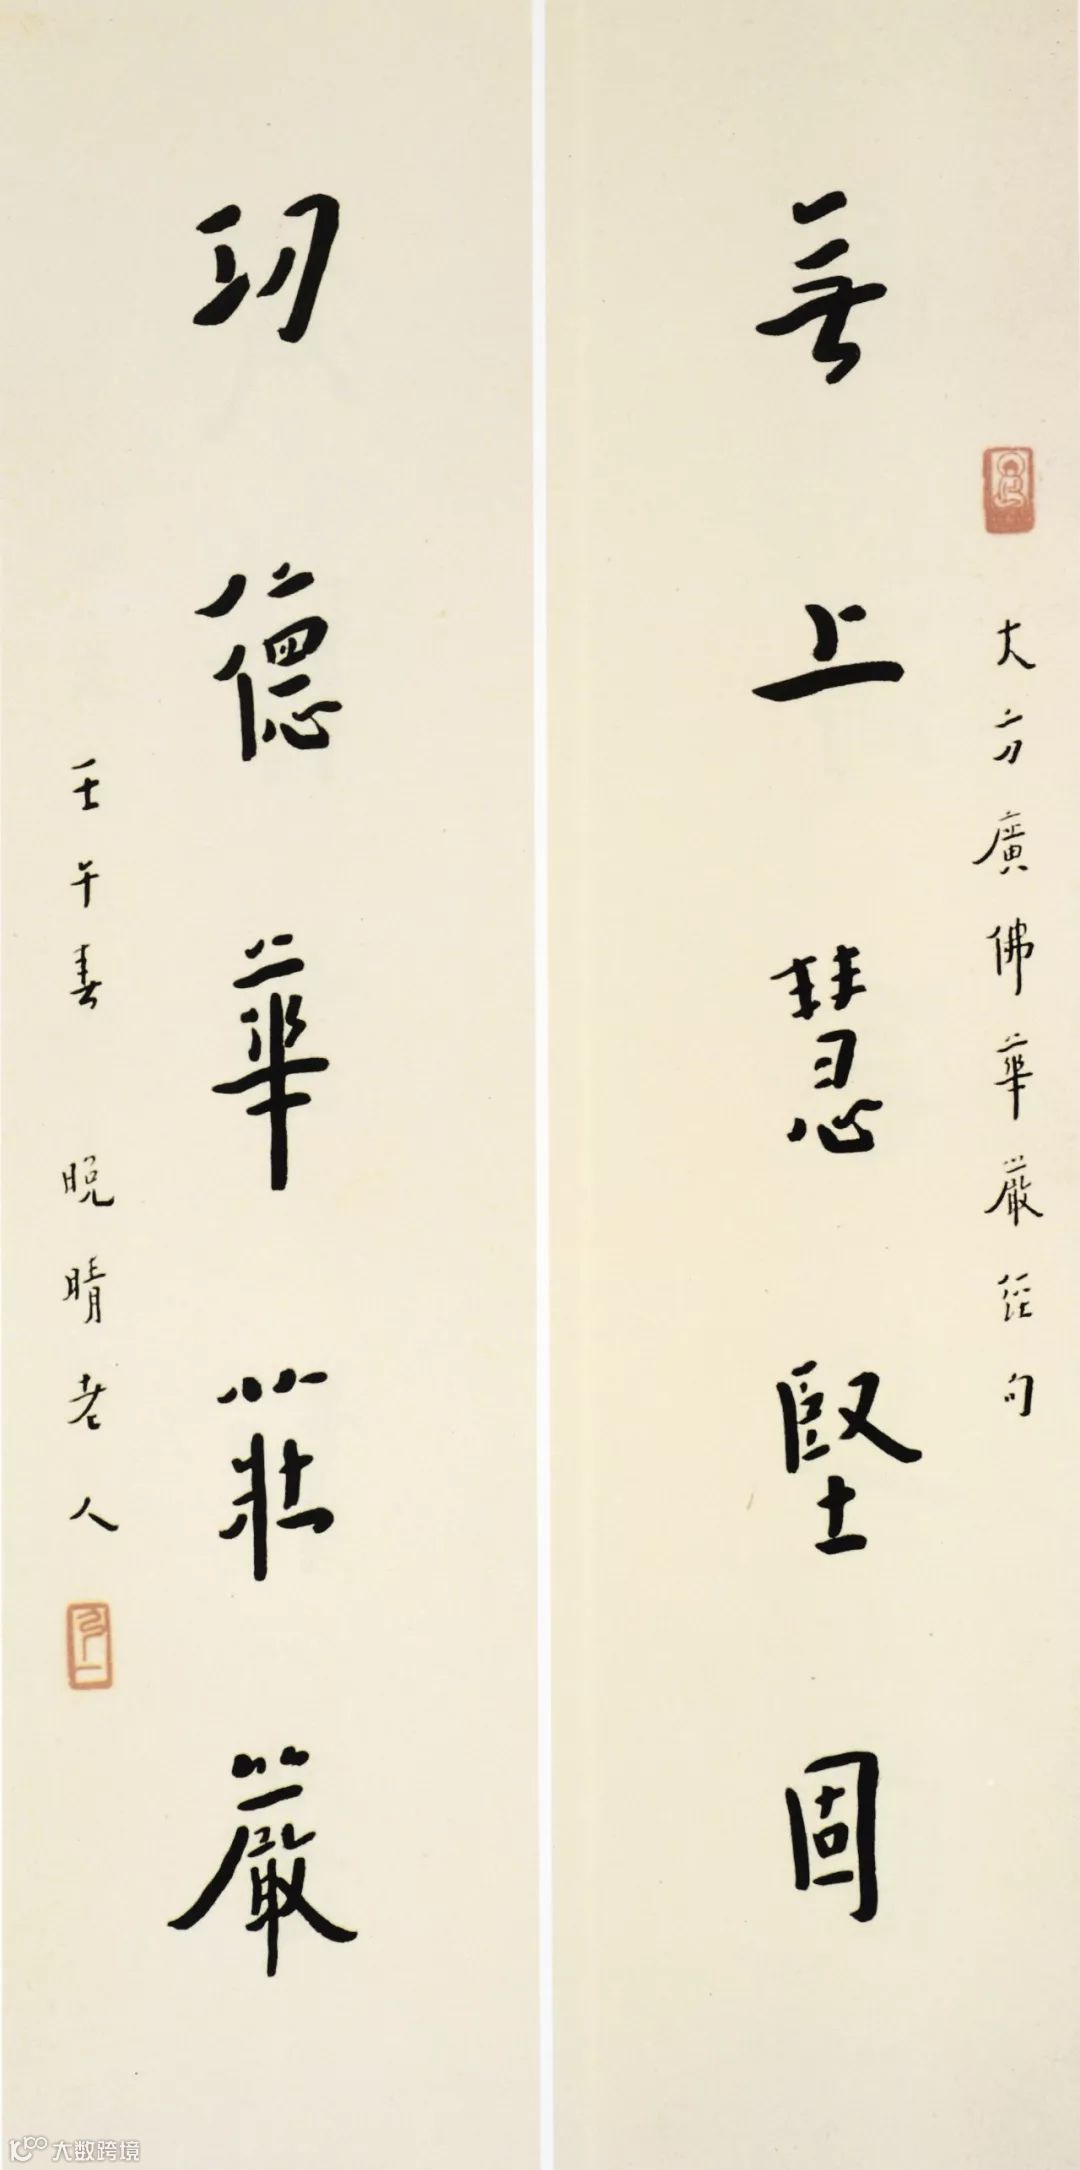 大方廣佛華嚴經句
無上慧堅固
功德華莊嚴
壬午春 晚晴老人
弘一
大数跨境